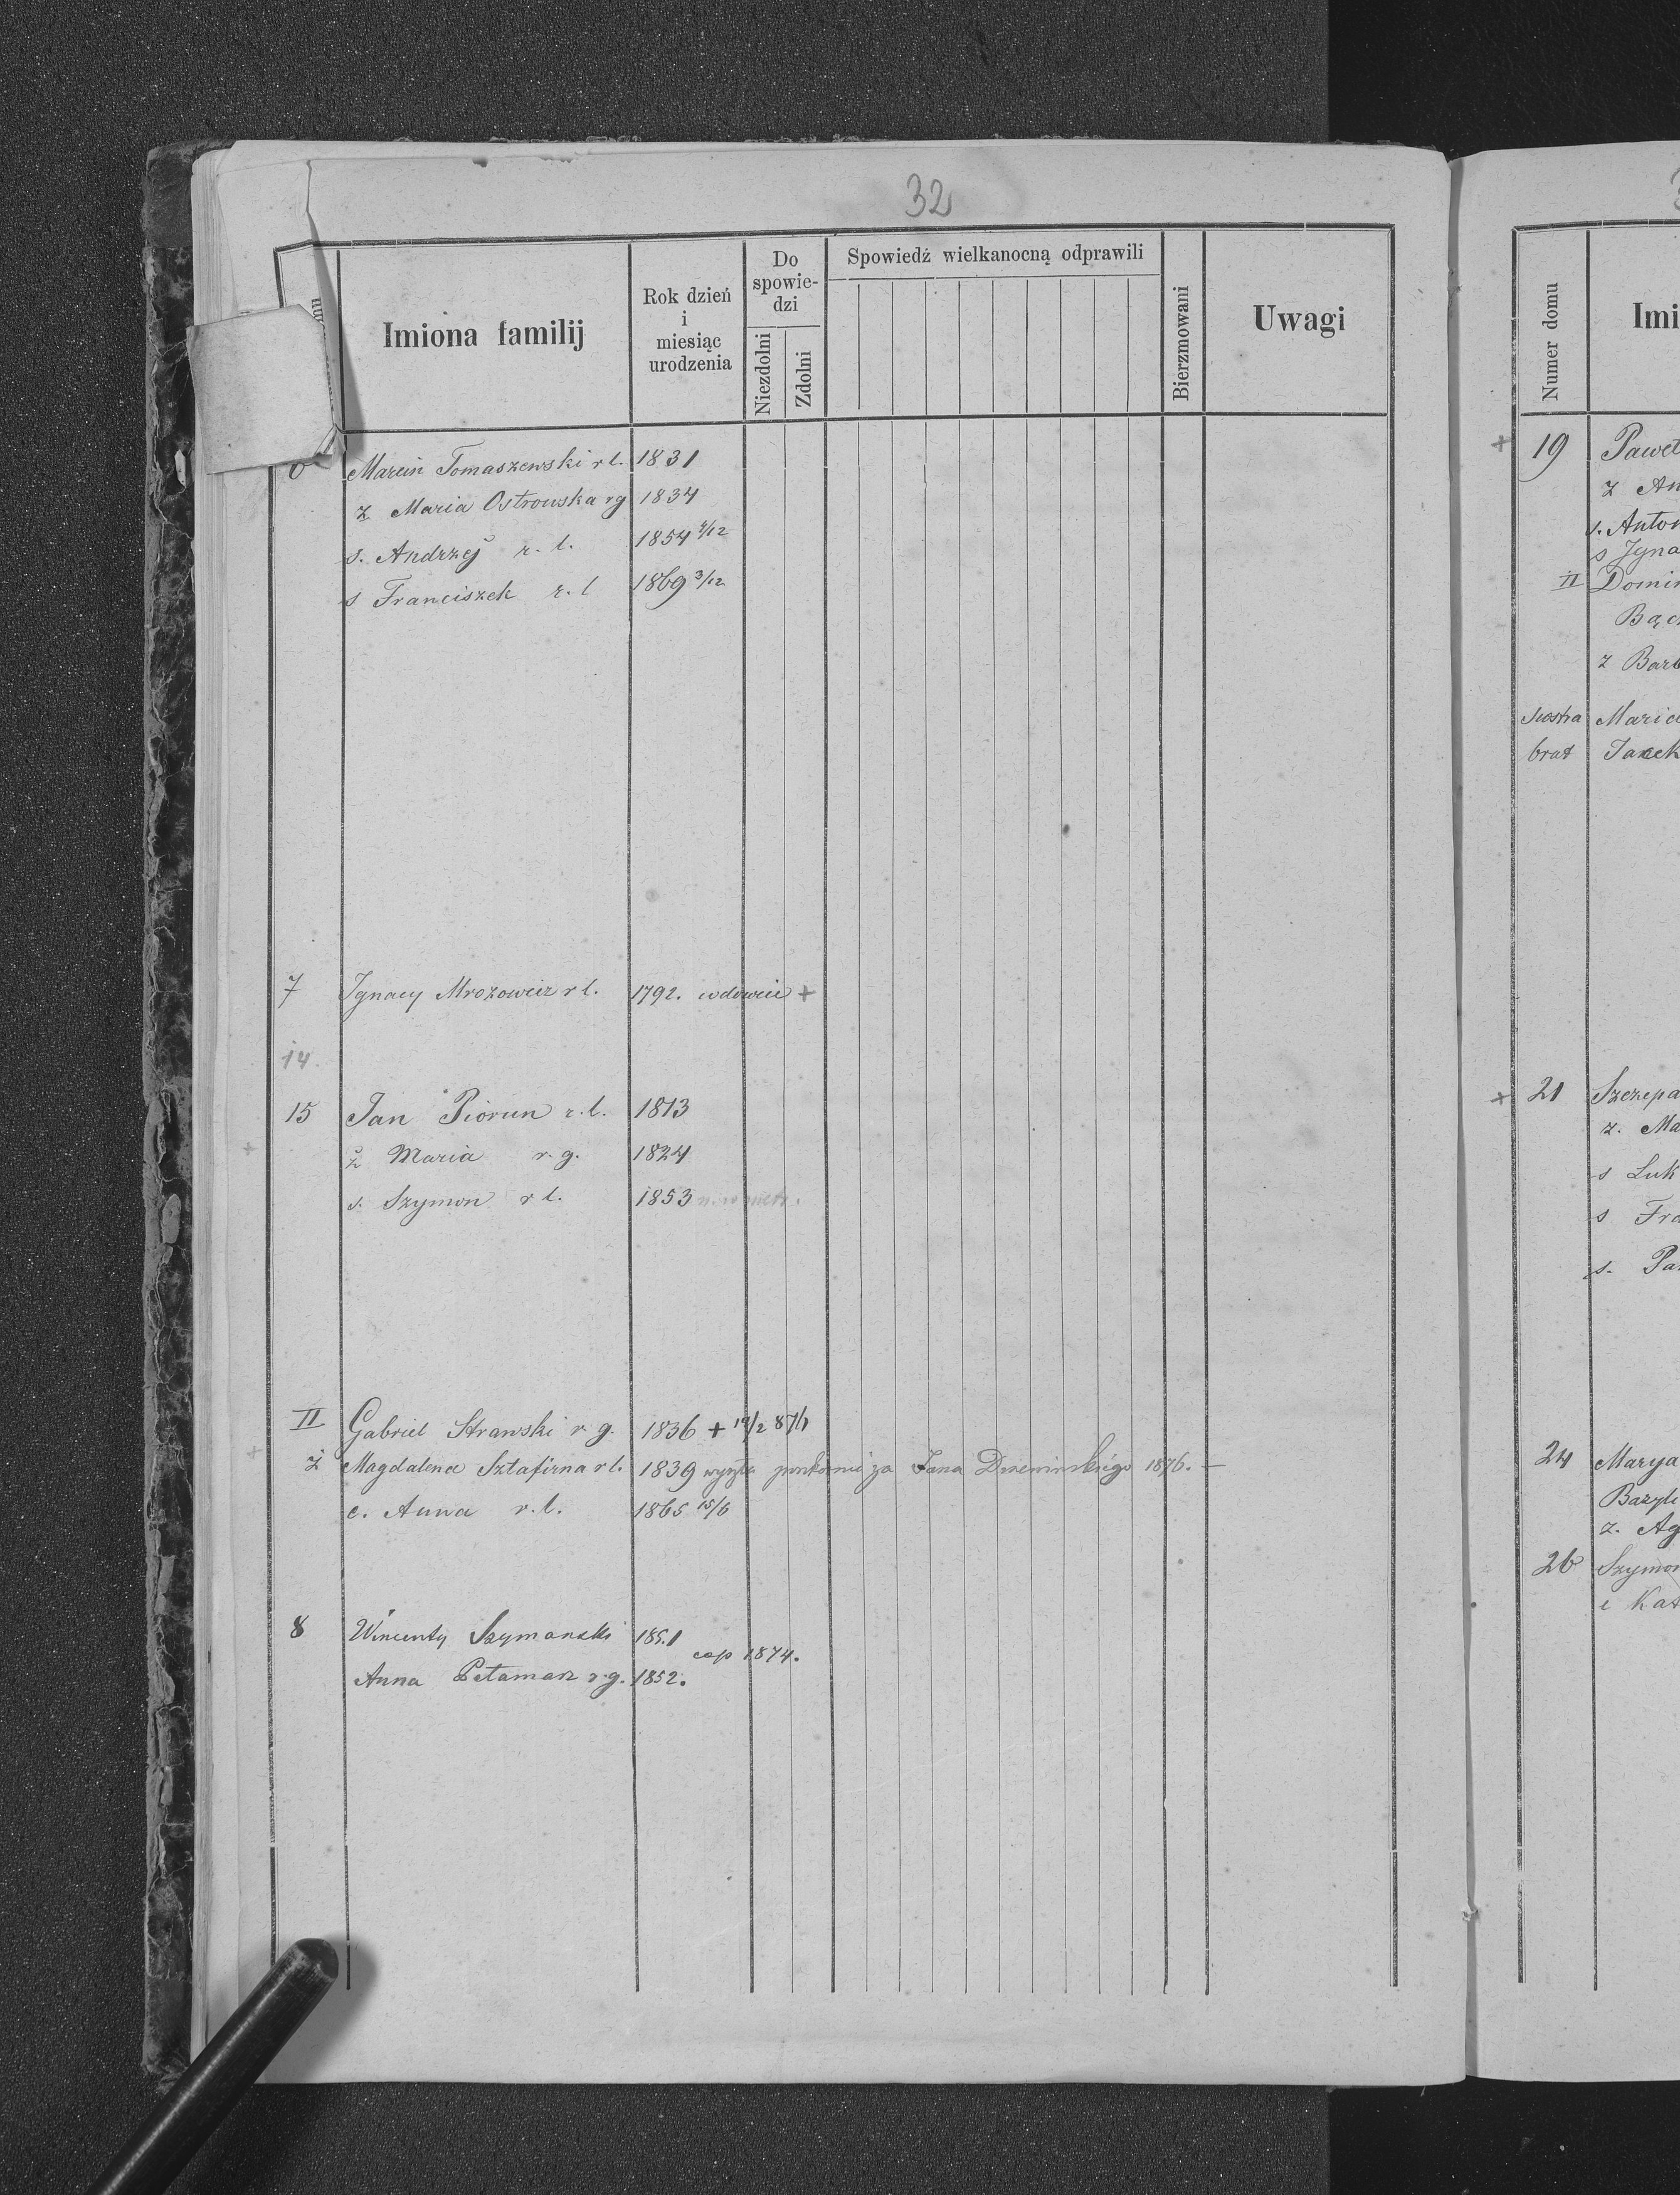 32
Imiona familij
Rok dzień i miesiąc urodzenia
Do spowiedzi
Niezdolni
Zdolni
Spowiedź wielkanocną odprawili
Bierzmowani
Uwagi
6 Marcin Tomaszewski r l. 1831
ż Maria Ostrowska r g 1834
s. Andrzej r. l. 1854 4/12
s Franciszek r. l 1869 3/12
7 Ignacy Mrozowicz r l. 1792. wdowiec +
14.
15 Jan Piorun r. l. 1813
+ ż Maria r. g. 1824
s. Szymon r l. 1853
II Gabriel Strawski r. g. 1836 + 19/2 87/1
+ ż Magdalena Sztafirna r l. 1839 wyszła powtórnie za Jana Drzewinskiego 1876. —
c. Anna r. l. 1865 15/6
8 Wincenty Szymanski 1851
cop 1874.
Anna Petamarz r. g. 1852.
Numer domu
Imi
+ 19 Paweł
ż An
s. Anton
s Igna
II Domin
Bąc
ż Barb
siostra Maria
brat Jacek
+ 21 Szczepa
ż. Ma
s Luk
s Fra
s. Pa
24 Marya
Bazyli
ż. Ag
26 Szymon
i Kat